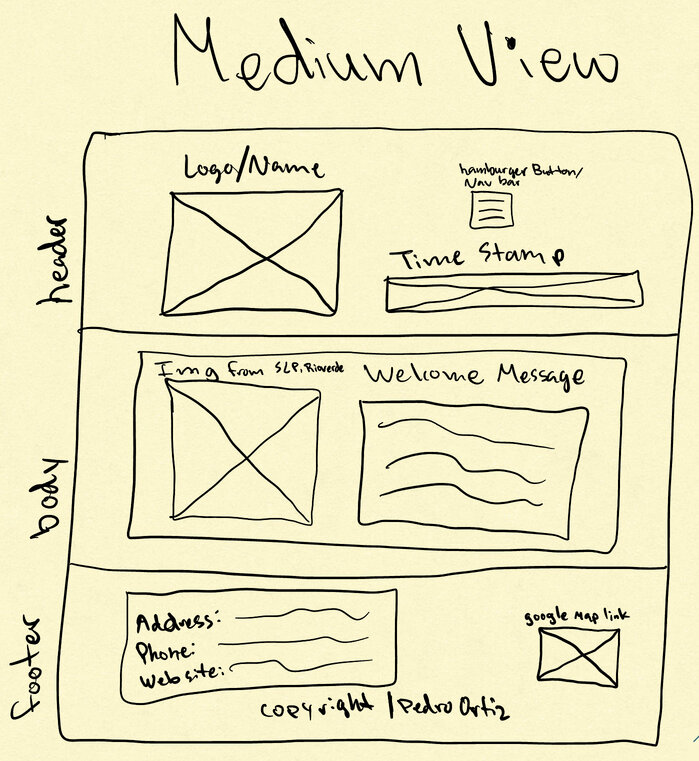 Medium View
header
Logo/Name
hamburger Button/
Nav bar
Time Stamp
body
Img from SLP, Rioverde
Welcome Message
footer
Address:
Phone:
Website:
google Map link
copyright / Pedro Ortiz